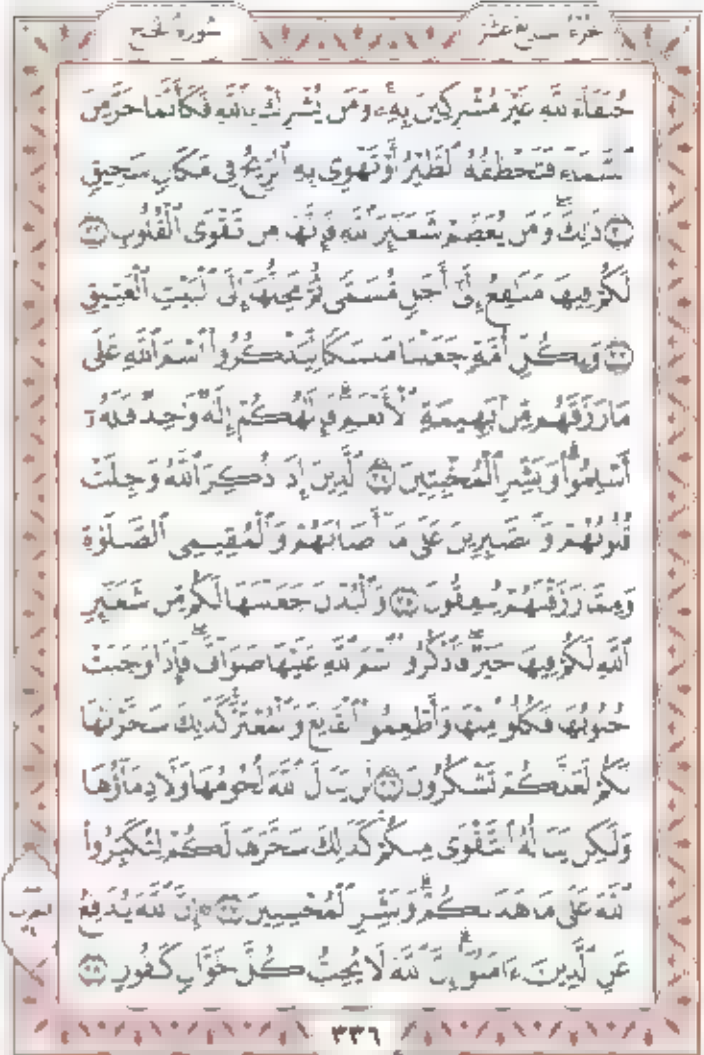 سورة الحج
الجزء السابع عشر
حُنَفَآءَ لِلَّهِ غَيْرَ مُشْرِكِينَ بِهِۦۚ وَمَن يُشْرِكْ بِٱللَّهِ فَكَأَنَّمَا خَرَّ مِنَ
ٱلسَّمَآءِ فَتَخْطَفُهُ ٱلطَّيْرُ أَوْ تَهْوِى بِهِ ٱلرِّيحُ فِى مَكَانٍ سَحِيقٍ
٣١ ذَٰلِكَۖ وَمَن يُعَظِّمْ شَعَٰٓئِرَ ٱللَّهِ فَإِنَّهَا مِن تَقْوَى ٱلْقُلُوبِ ٣٢
لَكُمْ فِيهَا مَنَٰفِعُ إِلَىٰٓ أَجَلٍ مُّسَمًّى ثُمَّ مَحِلُّهَآ إِلَى ٱلْبَيْتِ ٱلْعَتِيقِ
٣٣ وَلِكُلِّ أُمَّةٍ جَعَلْنَا مَنسَكًا لِّيَذْكُرُوا۟ ٱسْمَ ٱللَّهِ عَلَىٰ
مَا رَزَقَهُم مِّنۢ بَهِيمَةِ ٱلْأَنْعَٰمِۗ فَإِلَٰهُكُمْ إِلَٰهٌ وَٰحِدٌ فَلَهُۥٓ
أَسْلِمُوا۟ۗ وَبَشِّرِ ٱلْمُخْبِتِينَ ٣٤ ٱلَّذِينَ إِذَا ذُكِرَ ٱللَّهُ وَجِلَتْ
قُلُوبُهُمْ وَٱلصَّٰبِرِينَ عَلَىٰ مَآ أَصَابَهُمْ وَٱلْمُقِيمِى ٱلصَّلَوٰةِ
وَمِمَّا رَزَقْنَٰهُمْ يُنفِقُونَ ٣٥ وَٱلْبُدْنَ جَعَلْنَٰهَا لَكُم مِّن شَعَٰٓئِرِ
ٱللَّهِ لَكُمْ فِيهَا خَيْرٌۖ فَٱذْكُرُوا۟ ٱسْمَ ٱللَّهِ عَلَيْهَا صَوَآفَّۖ فَإِذَا وَجَبَتْ
جُنُوبُهَا فَكُلُوا۟ مِنْهَا وَأَطْعِمُوا۟ ٱلْقَانِعَ وَٱلْمُعْتَرَّۚ كَذَٰلِكَ سَخَّرْنَٰهَا
لَكُمْ لَعَلَّكُمْ تَشْكُرُونَ ٣٦ لَن يَنَالَ ٱللَّهَ لُحُومُهَا وَلَا دِمَآؤُهَا
وَلَٰكِن يَنَالُهُ ٱلتَّقْوَىٰ مِنكُمْۚ كَذَٰلِكَ سَخَّرَهَا لَكُمْ لِتُكَبِّرُوا۟
ٱللَّهَ عَلَىٰ مَا هَدَىٰكُمْۗ وَبَشِّرِ ٱلْمُحْسِنِينَ ٣٧ ۞ إِنَّ ٱللَّهَ يُدَٰفِعُ
عَنِ ٱلَّذِينَ ءَامَنُوٓا۟ۗ إِنَّ ٱللَّهَ لَا يُحِبُّ كُلَّ خَوَّانٍ كَفُورٍ ٣٨
٣٣٦